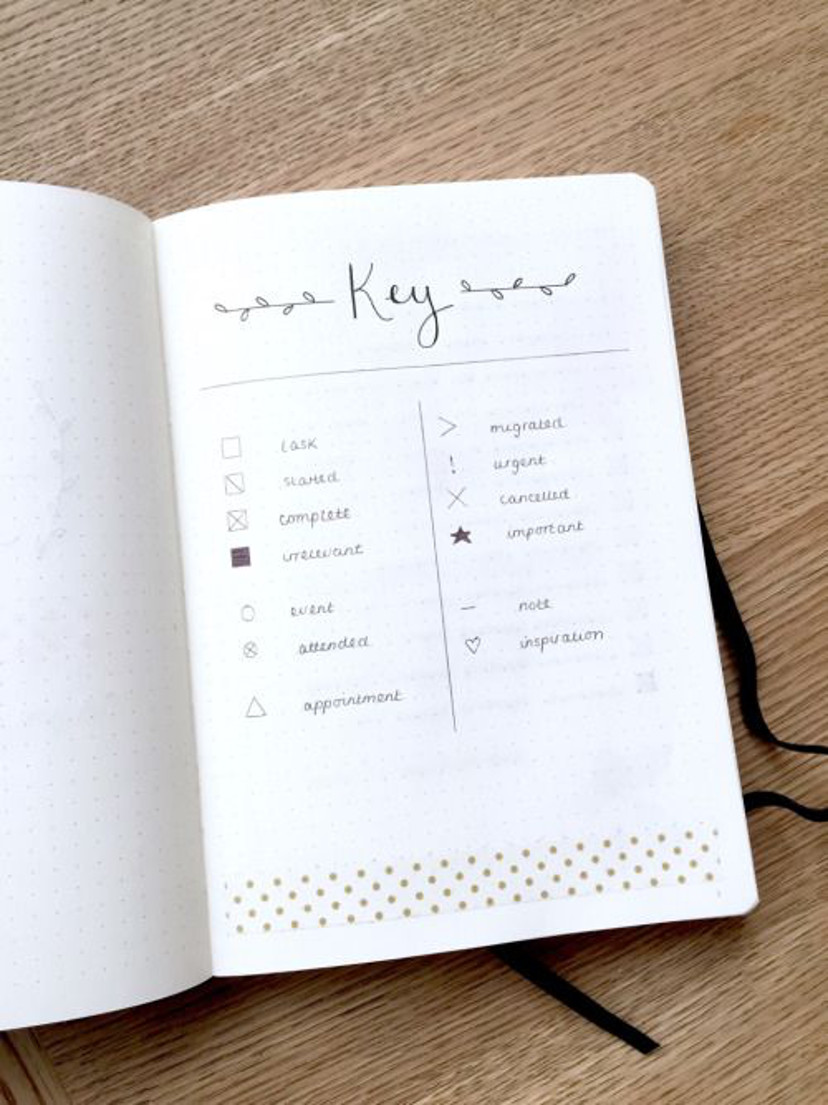 Key
task
started
complete
irrelevant
event
attended
appointment
> migrated
! urgent
cancelled
important
– note
inspiration